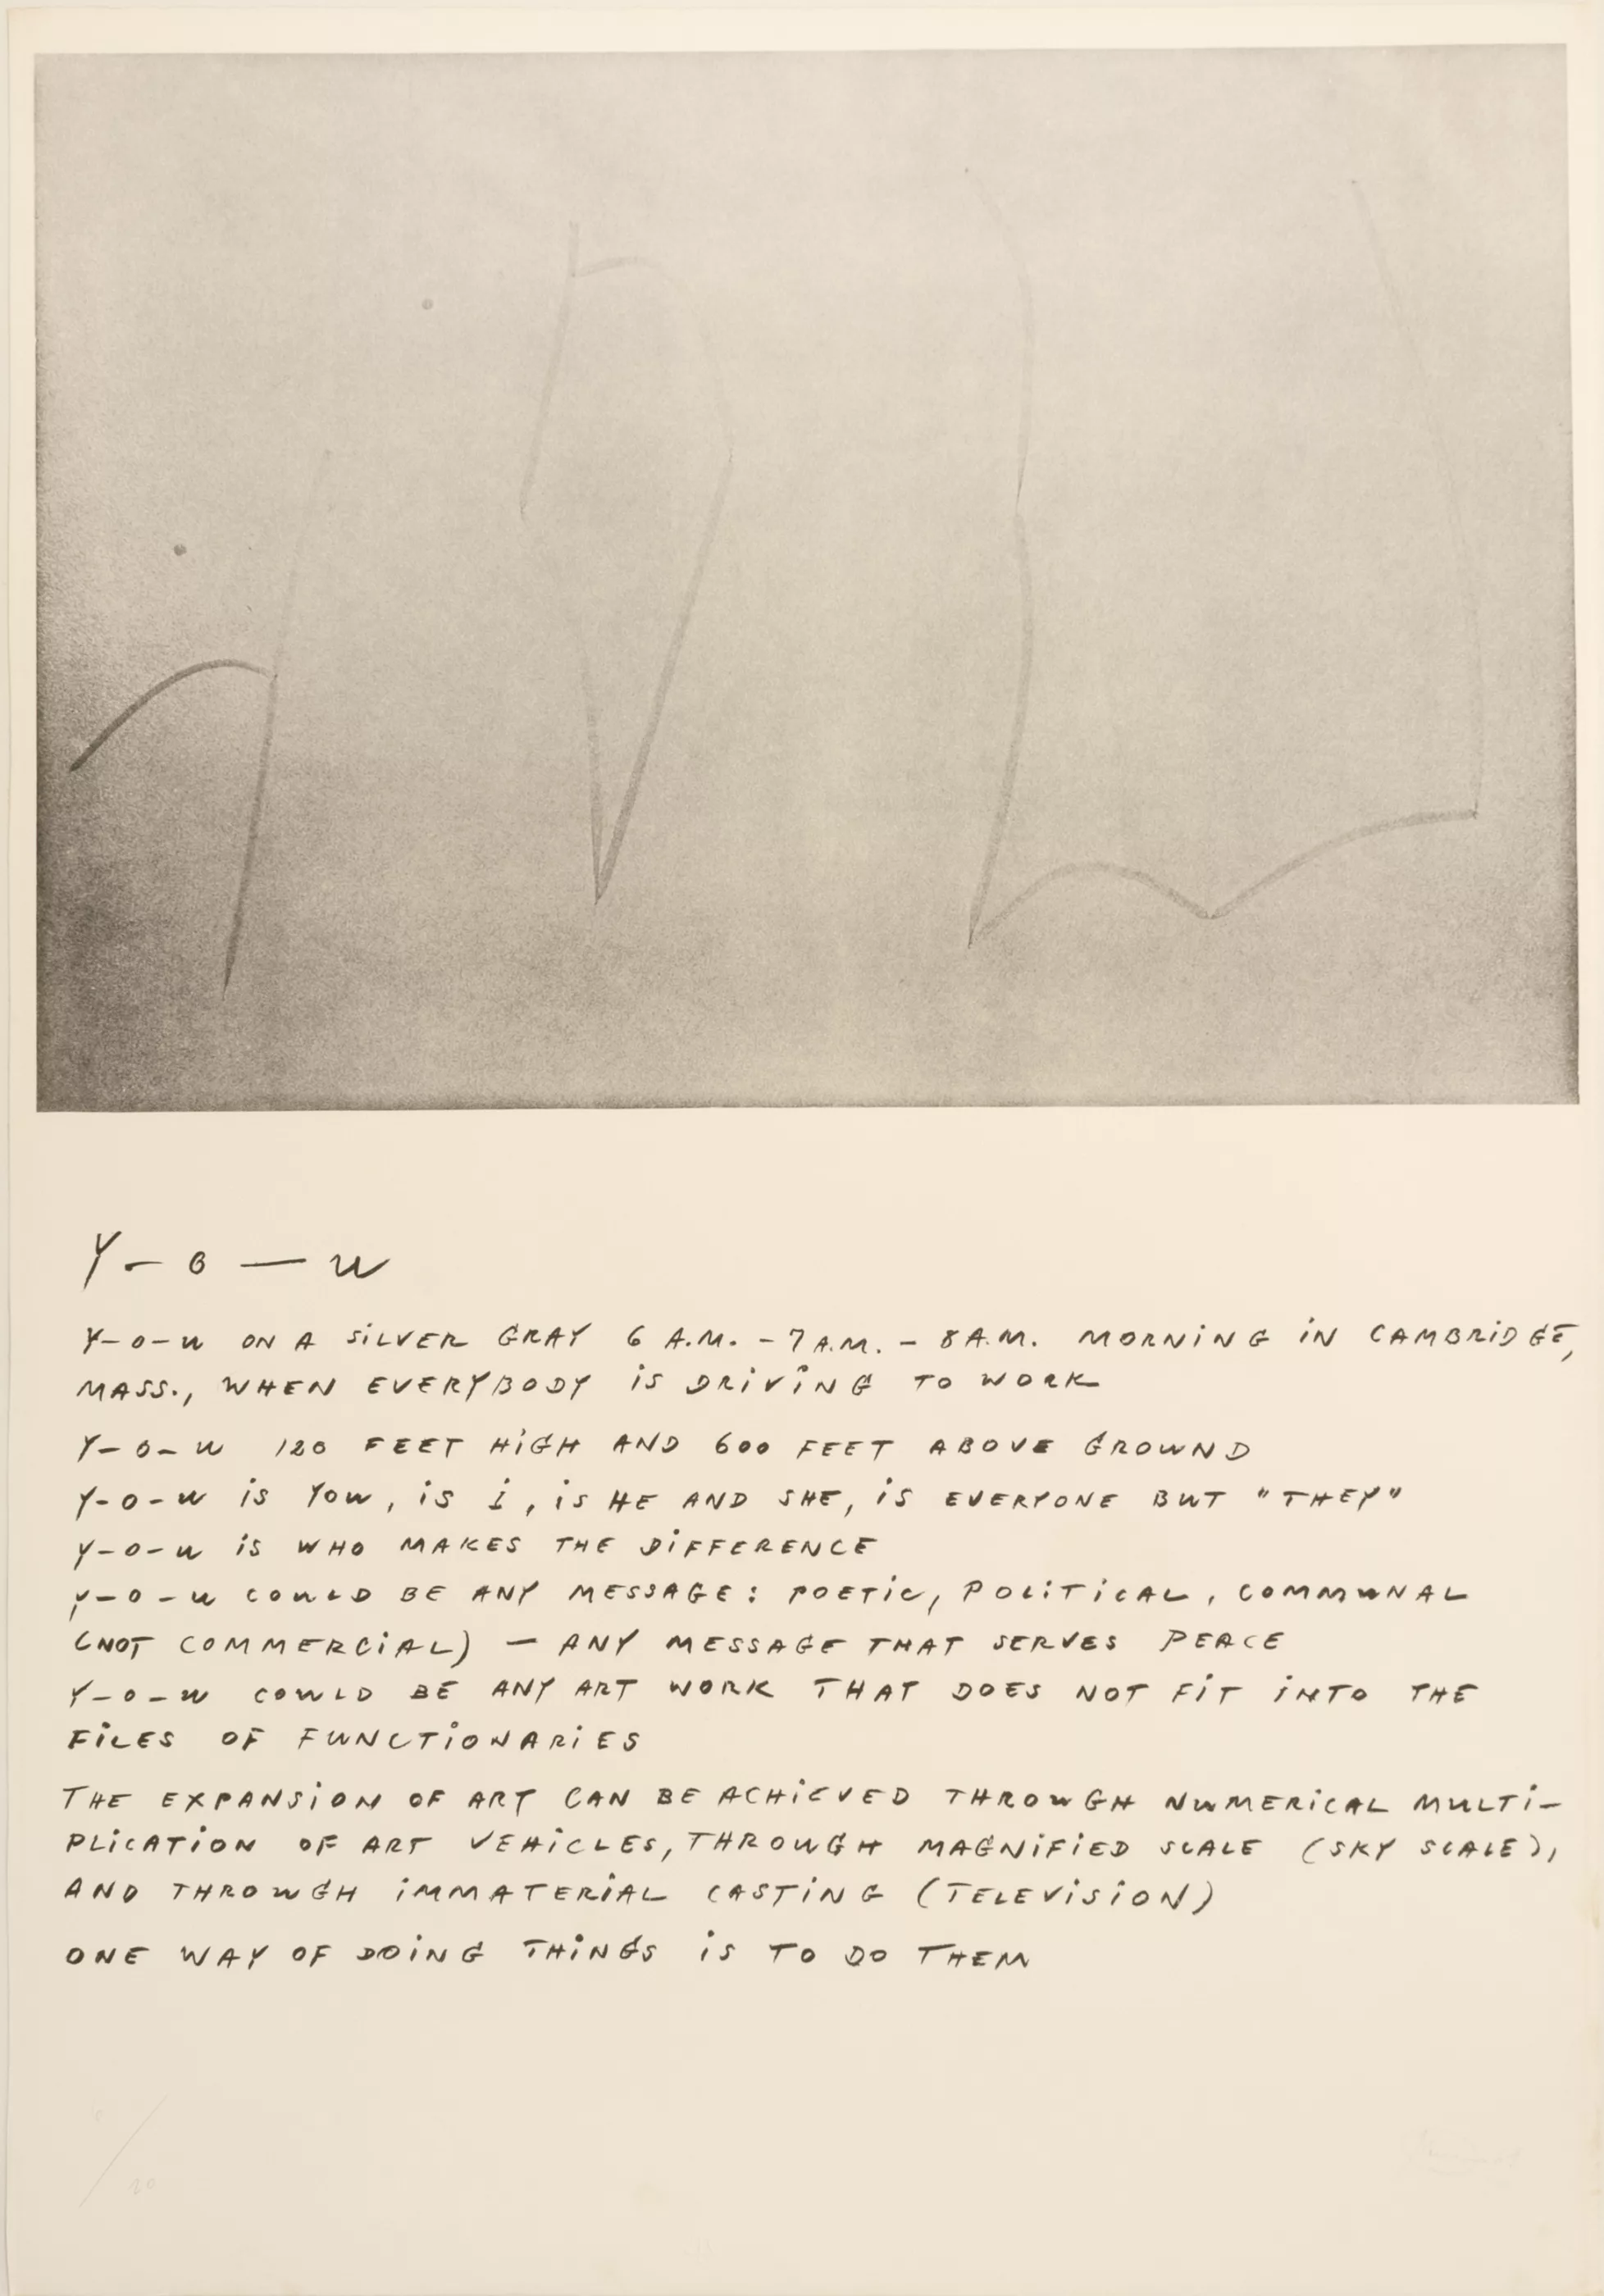 Y-O-U
Y-O-U ON A SILVER GRAY 6 A.M. - 7 A.M. - 8 A.M. MORNING IN CAMBRIDGE,
MASS., WHEN EVERYBODY IS DRIVING TO WORK
Y-O-U 120 FEET HIGH AND 600 FEET ABOVE GROUND
Y-O-U IS YOU, IS I, IS HE AND SHE, IS EVERYONE BUT "THEY"
Y-O-U IS WHO MAKES THE DIFFERENCE
Y-O-U COULD BE ANY MESSAGE: POETIC, POLITICAL, COMMUNAL
(NOT COMMERCIAL) — ANY MESSAGE THAT SERVES PEACE
Y-O-U COULD BE ANY ART WORK THAT DOES NOT FIT INTO THE
FILES OF FUNCTIONARIES
THE EXPANSION OF ART CAN BE ACHIEVED THROUGH NUMERICAL MULTI-
PLICATION OF ART VEHICLES, THROUGH MAGNIFIED SCALE (SKY SCALE),
AND THROUGH IMMATERIAL CASTING (TELEVISION)
ONE WAY OF DOING THINGS IS TO DO THEM